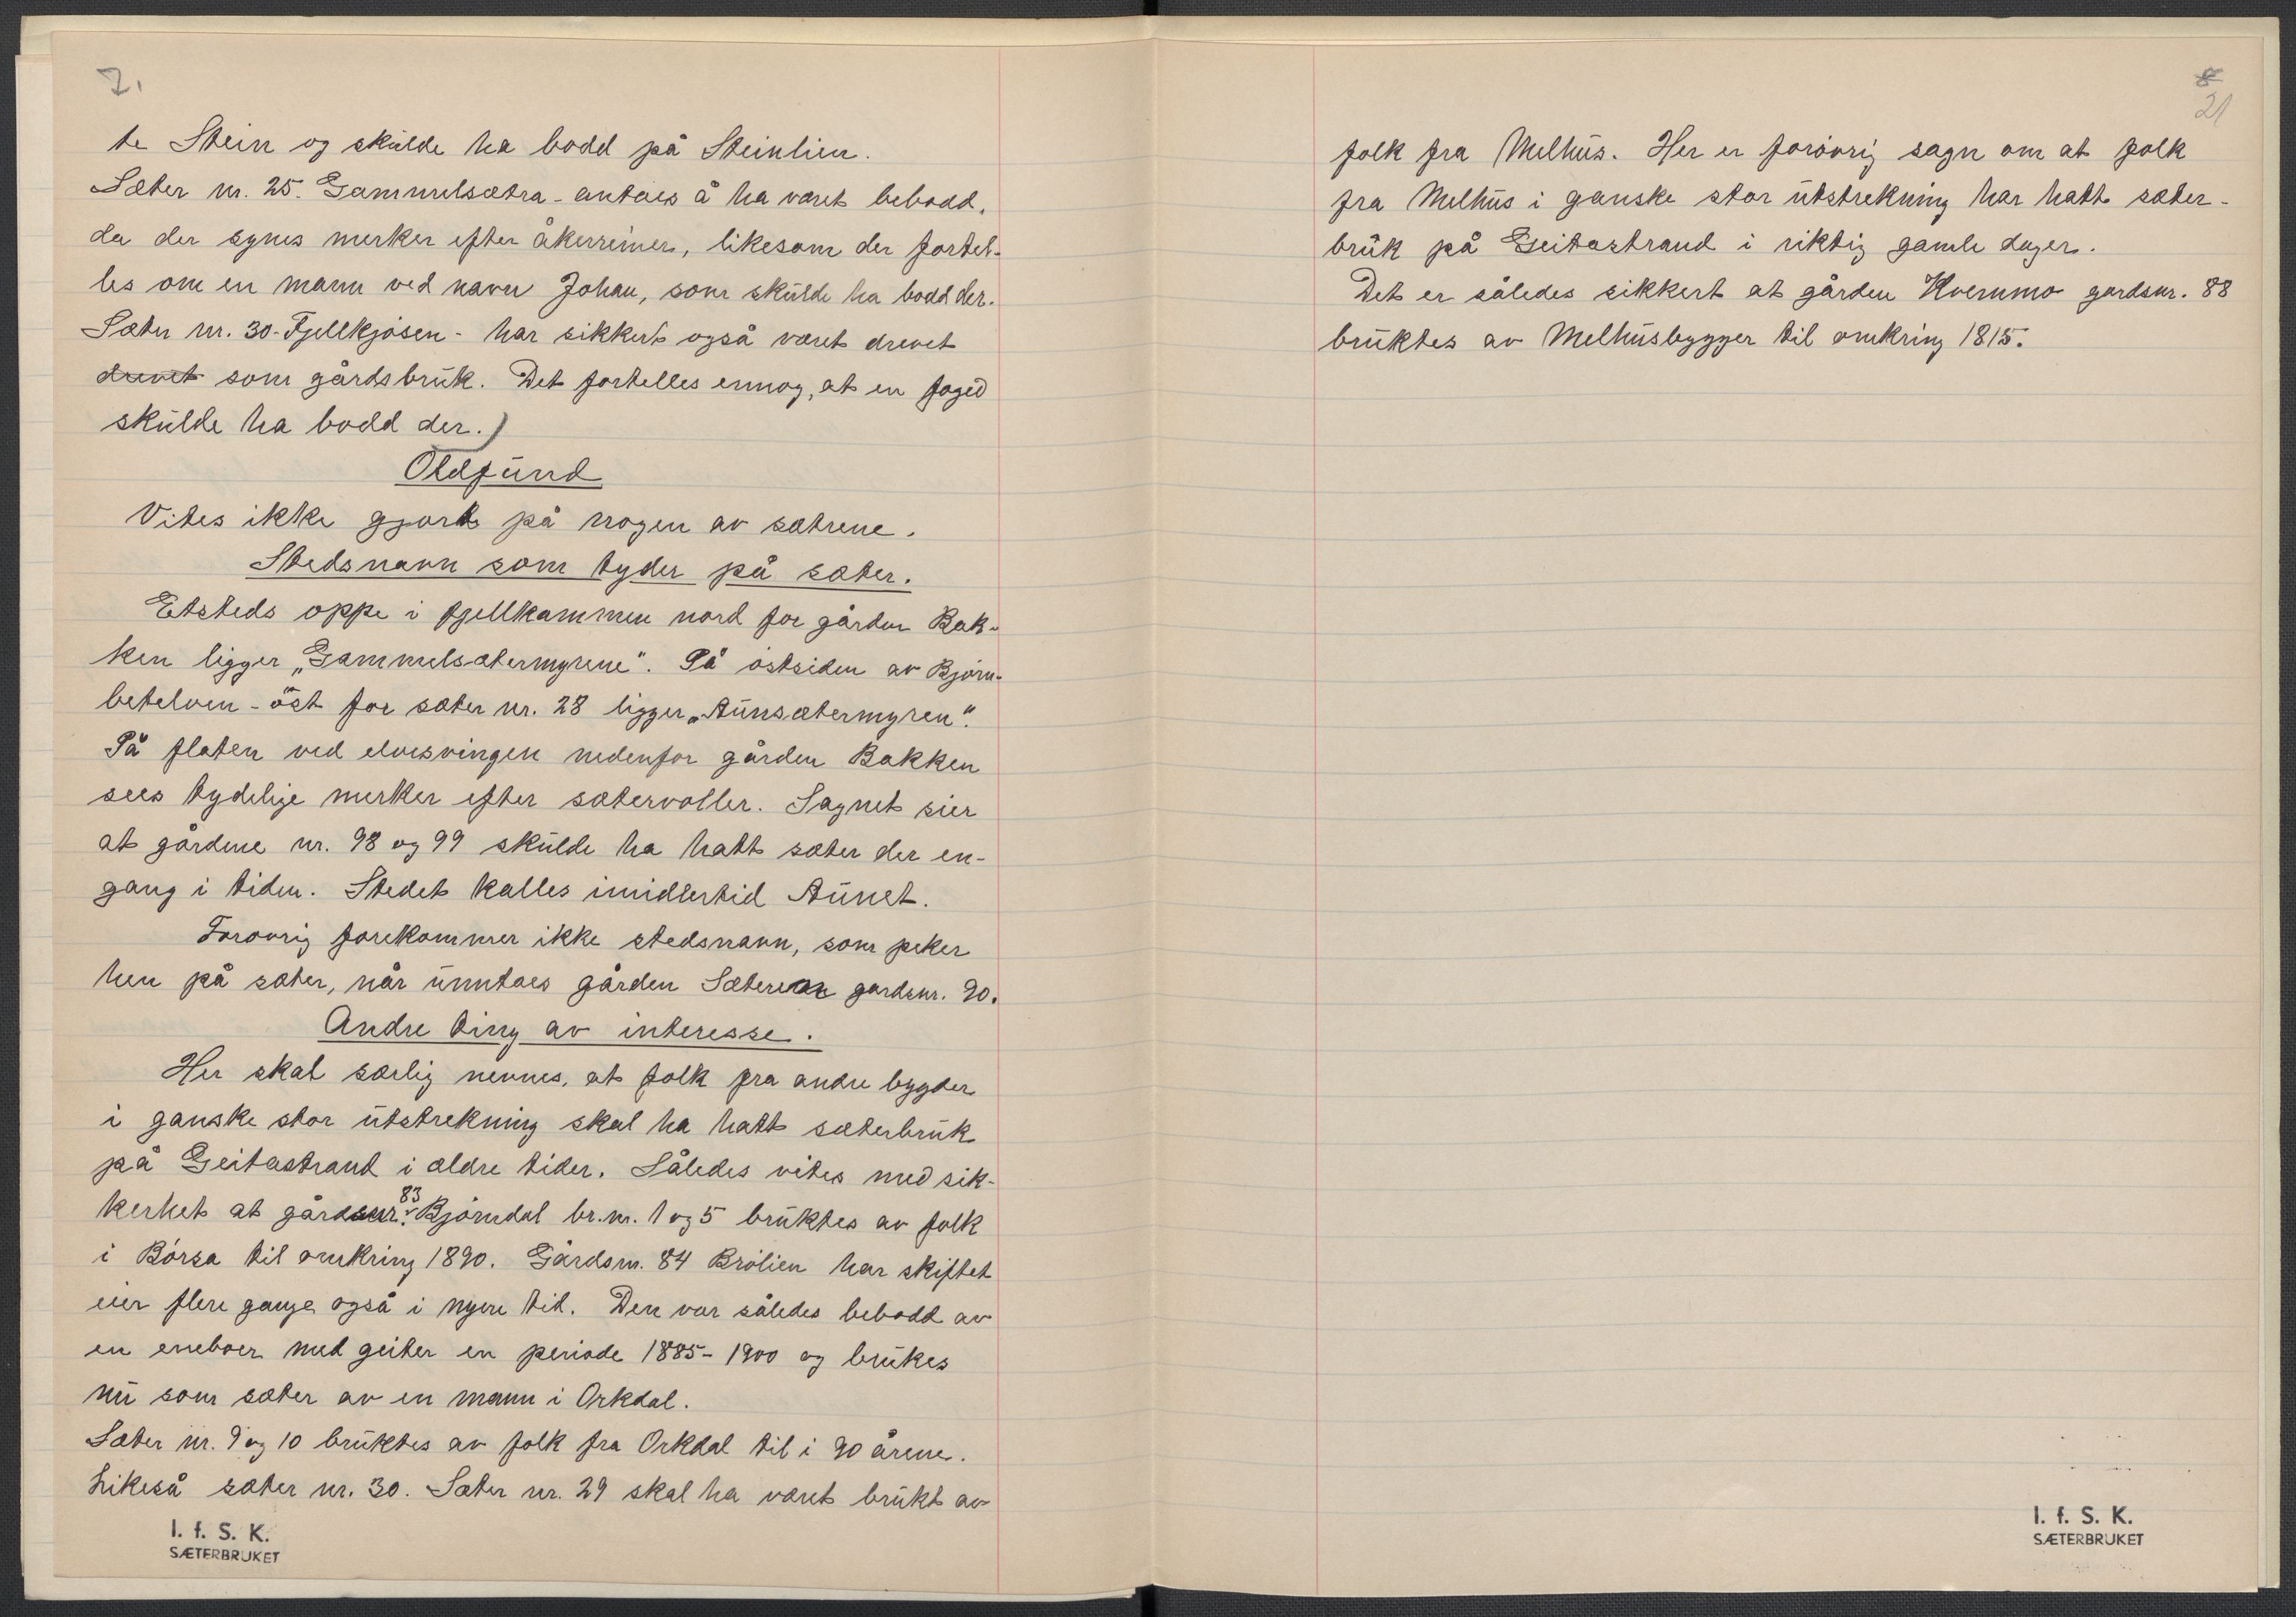 7.
te Stein og skulde ha bodd på Steinlien.
Sæter nr. 25. Gammelsætra - antaes å ha været bebodd,
da der synes merker efter åkerreiner, likesom der fortel-
les om en mann ved navn Johan, som skulde ha bodd der.
Sæter nr. 30 - Fjellkjøsen - har sikkert også været drevet
drevet som gårdsbruk. Det fortelles ennog, at en foged
skulde ha bodd der.)
Oldfund
Vites ikke gjort på nogen av sætrene.
Stedsnavn som tyder på sæter.
Etsteds oppe i fjellkammen nord for gården Bak-
ken ligger „Gammelsætermyrene". På østsiden av Bjørn-
betelven - øst for sæter nr. 28 ligger „Aunsætermyren".
På flaten ved elvesvingen nedenfor gården Bakken
sees tydelige merker efter sætervoller. Sagnet sier
at gårdene nr. 98 og 99 skulde ha hatt sæter der en-
gang i tiden. Stedet kalles imidlertid Aunet.
Forøvrig forekommer ikke stedsnavn, som peker
hen på sæter, når unntaes gården Sæteren gardsnr. 90.
Andre ting av interesse.
Her skal særlig nevnes, at folk fra andre bygder
i ganske stor utstrekning skal ha hatt sæterbruk
på Geitastrand i ældre tider. Således vites med sik-
kerhet at gårdsnr. 83 Bjørndal br.nr. 1 og 5 bruktes av folk
i Børsa til omkring 1890. Gårdsnr. 84 Brølien har skiftet
eier flere gange også i nyere tid. Den var således bebodd av
en eneboer med geiter en periode 1885-1900 og brukes
nu som sæter av en mann i Orkdal.
Sæter nr. 9 og 10 bruktes av folk fra Orkdal til i 90 årene.
Likeså sæter nr. 30. Sæter nr. 29 skal ha været brukt av
I. f. S. K.
SÆTERBRUKET
8
21
folk fra Melhus. Her er forøvrig sagn om at folk
fra Melhus i ganske stor utstrekning har hatt sæter-
bruk på Geitastrand i riktig gamle dager.
Det er således sikkert at gården Kvernmo gardsnr. 88
bruktes av Melhusbygger til omkring 1815.
I. f. S. K.
SÆTERBRUKET